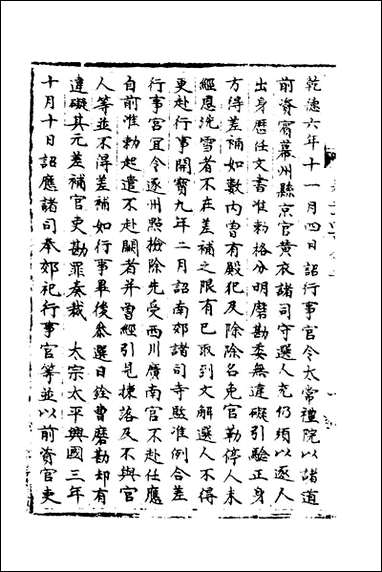 乾德六年十一月四日詔行事官令太常禮院以諸道
前資賓幕州縣京官黄衣諸司守選人充仍須以逐人
出身歷任文書准勅格分明磨勘委無違礙引驗正身
方得差補如數内曾有殿犯及除除名免官勒停人未
經應洗雪者不在差補之限有已取到文解選人不得
更赴行事開寶九年二月詔南郊諸司寺監准例合差
行事官宜令逐州㸃檢除先受西川廣南官不赴任應
自前准勅起遣不赴闕者并曾經引見揀落及不與官
人等並不得差補如行事畢後參選日銓曹磨勘却有
違礙其元差補官吏勘罪奏裁 太宗太平興國三年
十月十日詔應諸司奉郊祀行事官等並以前資官吏